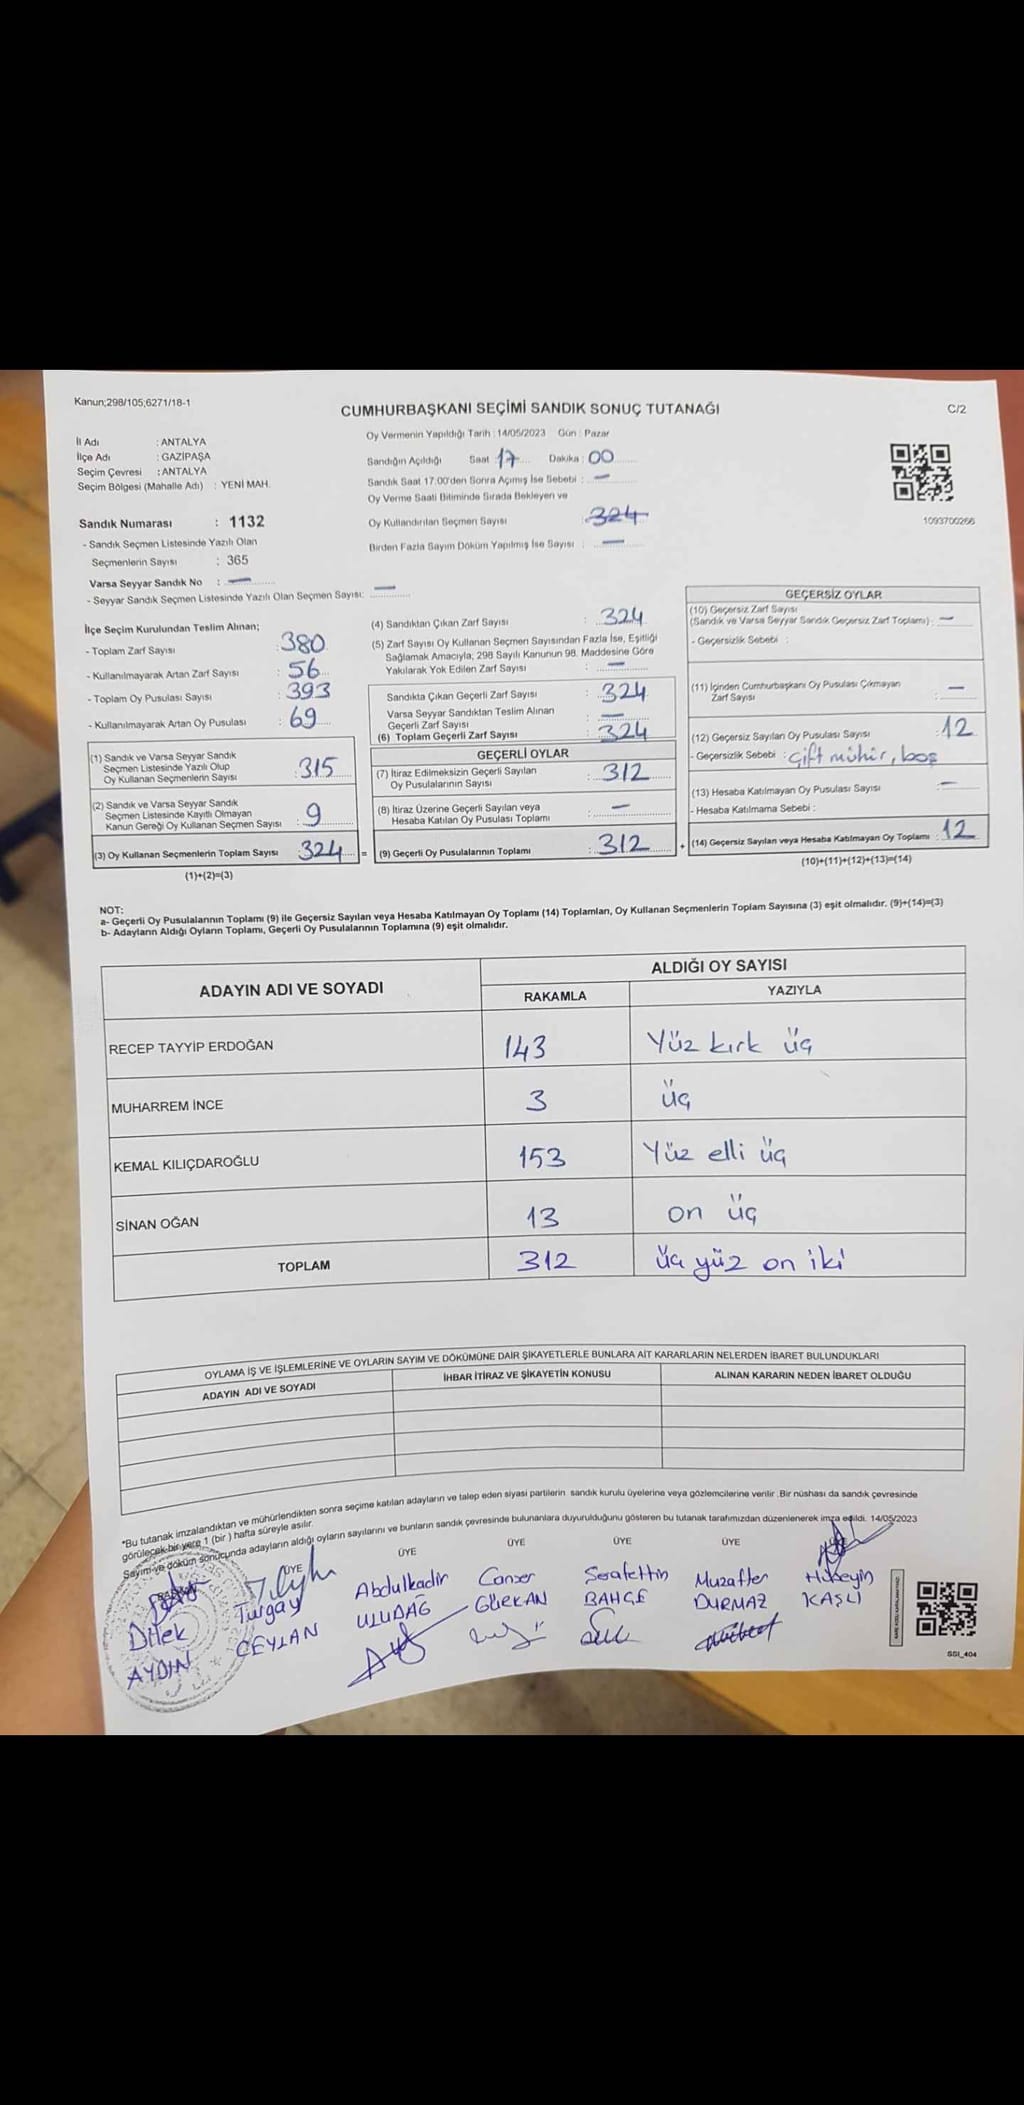 Kanun;298/105;6271/18-1
CUMHURBAŞKANI SEÇİMİ SANDIK SONUÇ TUTANAĞI
C/2
Oy Vermenin Yapıldığı Tarih : 14/05/2023 Gün : Pazar
İl Adı : ANTALYA
İlçe Adı : GAZİPAŞA
Seçim Çevresi : ANTALYA
Seçim Bölgesi (Mahalle Adı) : YENİ MAH.
Sandığın Açıldığı Saat 17 Dakika : 00
Sandık Saat 17.00'den Sonra Açımış İse Sebebi : —
Oy Verme Saati Bitiminde Sırada Bekleyen ve
Oy Kullandırılan Seçmen Sayısı : 324
Birden Fazla Sayım Döküm Yapılmış İse Sayısı : —
1093700266
Sandık Numarası : 1132
- Sandık Seçmen Listesinde Yazılı Olan
Seçmenlerin Sayısı : 365
Varsa Seyyar Sandık No : —
- Seyyar Sandık Seçmen Listesinde Yazılı Olan Seçmen Sayısı: —
İlçe Seçim Kurulundan Teslim Alınan;
- Toplam Zarf Sayısı : 380
- Kullanılmayarak Artan Zarf Sayısı : 56
- Toplam Oy Pusulası Sayısı : 393
- Kullanılmayarak Artan Oy Pusulası : 69
(1) Sandık ve Varsa Seyyar Sandık
Seçmen Listesinde Yazılı Olup
Oy Kullanan Seçmenlerin Sayısı : 315
(2) Sandık ve Varsa Seyyar Sandık
Seçmen Listesinde Kayıtlı Olmayan
Kanun Gereği Oy Kullanan Seçmen Sayısı : 9
(3) Oy Kullanan Seçmenlerin Toplam Sayısı : 324 =
(1)+(2)=(3)
(4) Sandıktan Çıkan Zarf Sayısı : 324
(5) Zarf Sayısı Oy Kullanan Seçmen Sayısından Fazla İse, Eşitliği
Sağlamak Amacıyla; 298 Sayılı Kanunun 98. Maddesine Göre
Yakılarak Yok Edilen Zarf Sayısı : —
Sandıkta Çıkan Geçerli Zarf Sayısı : 324
Varsa Seyyar Sandıktan Teslim Alınan
Geçerli Zarf Sayısı : —
(6) Toplam Geçerli Zarf Sayısı : 324
GEÇERLİ OYLAR
(7) İtiraz Edilmeksizin Geçerli Sayılan
Oy Pusulalarının Sayısı : 312
(8) İtiraz Üzerine Geçerli Sayılan veya
Hesaba Katılan Oy Pusulası Toplamı : —
(9) Geçerli Oy Pusulalarının Toplamı : 312 +
GEÇERSİZ OYLAR
(10) Geçersiz Zarf Sayısı
(Sandık ve Varsa Seyyar Sandık Geçersiz Zarf Toplamı) : —
- Geçersizlik Sebebi :
(11) İçinden Cumhurbaşkanı Oy Pusulası Çıkmayan
Zarf Sayısı : —
(12) Geçersiz Sayılan Oy Pusulası Sayısı : 12
- Geçersizlik Sebebi : çift mühür, boş
(13) Hesaba Katılmayan Oy Pusulası Sayısı : —
- Hesaba Katılmama Sebebi :
(14) Geçersiz Sayılan veya Hesaba Katılmayan Oy Toplamı : 12
(10)+(11)+(12)+(13)=(14)
NOT:
a- Geçerli Oy Pusulalarının Toplamı (9) ile Geçersiz Sayılan veya Hesaba Katılmayan Oy Toplamı (14) Toplamları, Oy Kullanan Seçmenlerin Toplam Sayısına (3) eşit olmalıdır. (9)+(14)=(3)
b- Adayların Aldığı Oyların Toplamı, Geçerli Oy Pusulalarının Toplamına (9) eşit olmalıdır.
ADAYIN ADI VE SOYADI
ALDIĞI OY SAYISI
RAKAMLA YAZIYLA
RECEP TAYYİP ERDOĞAN 143 Yüz kırk üç
MUHARREM İNCE 3 üç
KEMAL KILIÇDAROĞLU 153 Yüz elli üç
SİNAN OĞAN 13 on üç
TOPLAM 312 üç yüz on iki
OYLAMA İŞ VE İŞLEMLERİNE VE OYLARIN SAYIM VE DÖKÜMÜNE DAİR ŞİKAYETLERLE BUNLARA AİT KARARLARIN NELERDEN İBARET BULUNDUKLARI
ADAYIN ADI VE SOYADI İHBAR İTİRAZ VE ŞİKAYETİN KONUSU ALINAN KARARIN NEDEN İBARET OLDUĞU
*Bu tutanak imzalandıktan ve mühürlendikten sonra seçime katılan adayların ve talep eden siyasi partilerin sandık kurulu üyelerine veya gözlemcilerine verilir .Bir nüshası da sandık çevresinde
görülecek bir yere 1 (bir ) hafta süreyle asılır.
Sayım ve döküm sonucunda adayların aldığı oyların sayılarını ve bunların sandık çevresinde bulunanlara duyurulduğunu gösteren bu tutanak tarafımızdan düzenlenerek imza edildi. 14/05/2023
ÜYE ÜYE ÜYE ÜYE ÜYE
Dilek Turgay Abdulkadir Canser Serafettin Muzaffer Hüseyin
AYDIN CEYLAN ULUDAĞ GÜRKAN BAHÇE DURMAZ KAŞLI
SSI_404